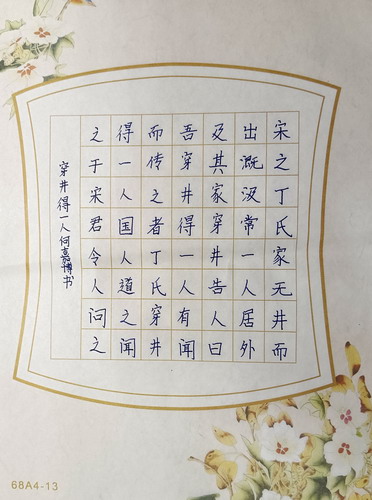 宋之丁氏家无井而
出溉汲常一人居外
及其家穿井告人曰
吾穿井得一人有闻
而传之者丁氏穿井
得一人国人道之闻
之于宋君令人问之
穿井得一人何嘉博书
68A4-13